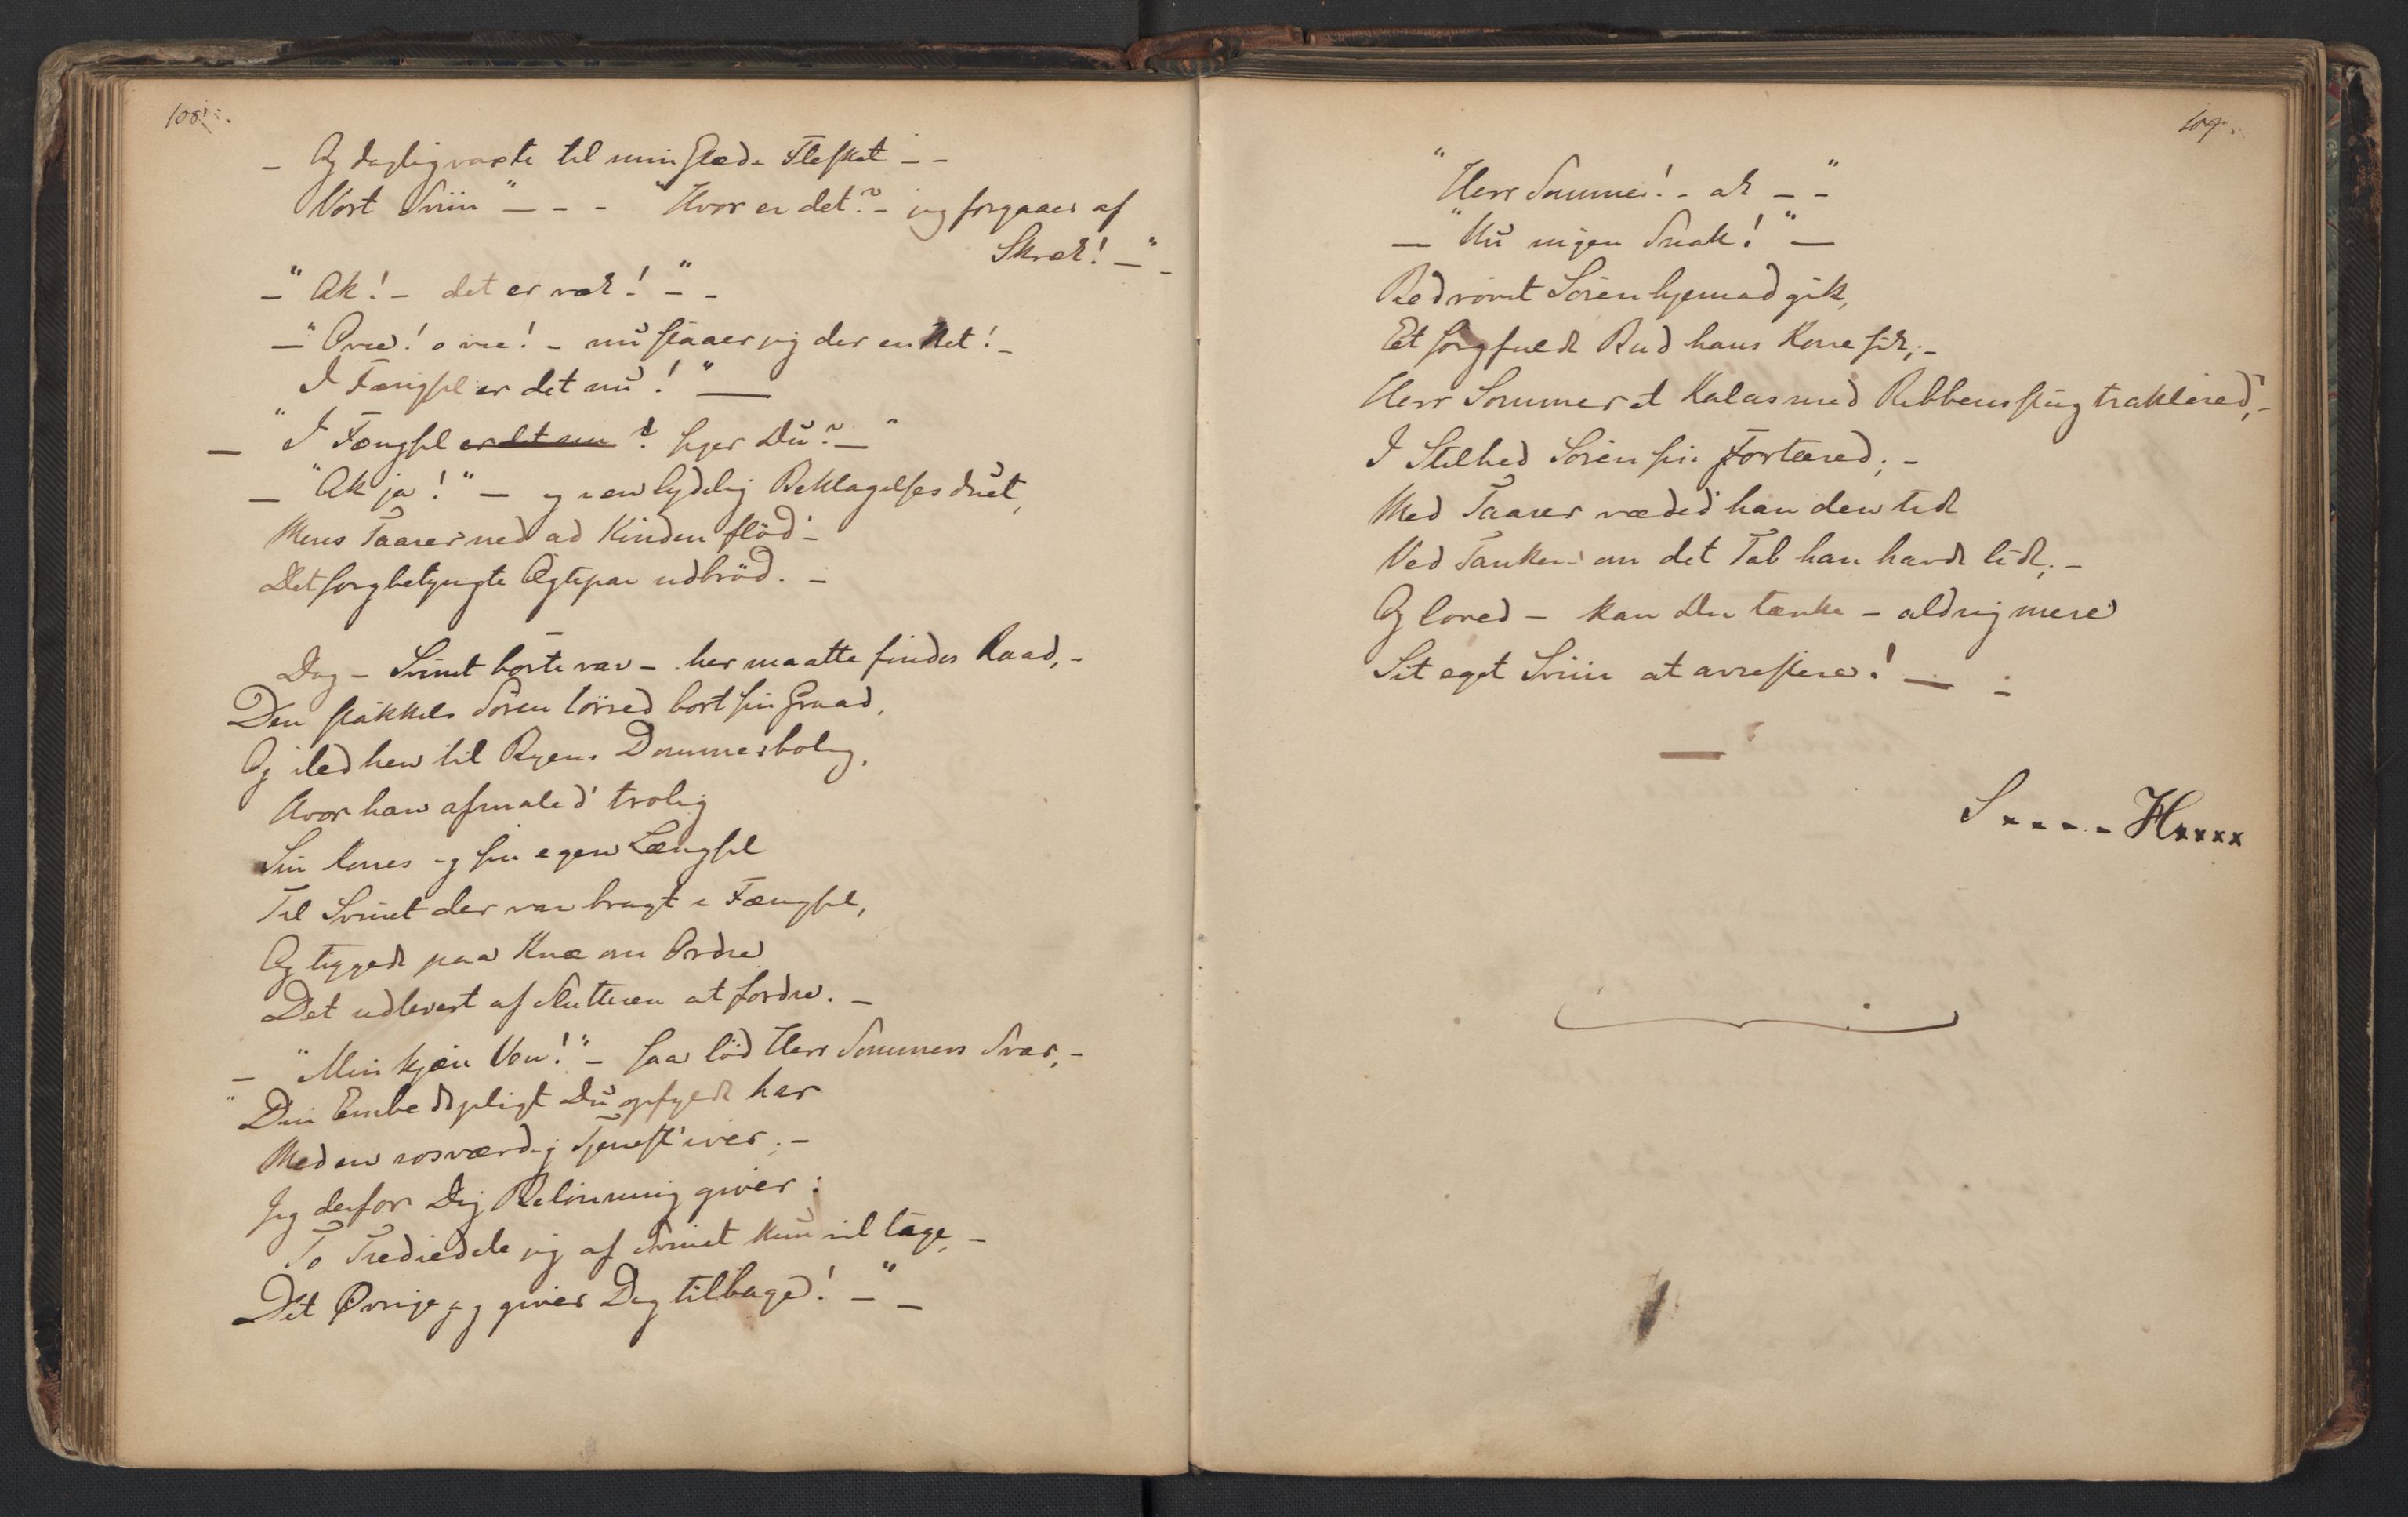 108.
– Og daglig voxte til min Glæde Flesket – –
Vort Sviin" – – – "Hvor er det? – jeg forgaaer af
Skræk! –" –
– "Ak! – det er væk!" – –
– "O vee! o vee! – nu staaer jeg der en Net! –
I Fængsel er det nu!" –
– "I Fængsel er det nu ? siger Du? –"
– "Ak ja!" – og i en lydelig Beklagelses duet,
Mens Taarer ned ad Kinden flöd –
Det sorgbetyngte Ægtepar udbröd. –
Dog – Svinet borte var – her maatte findes Raad, –
Den stakkels Sören törred bort sin Graad,
Og iled hen til Byens Dommerbolig,
Hvor han afmaled' trolig
Sin Kones og sin egen Længsel
Til Svinet der var bragt i Fængsel,
Og tiggede paa Knæ om Ordre
Det udlevert af Slutteren at fordre. –
– "Min kjære Ven!" – saa löd Herr Sommers Svar, –
"Din Embedspligt Du opfyldt har
Med en rosværdig Tjenest'iver; –
Jeg derfor Dig Belönning giver:
To Trediedele jeg af Svinet kun vil tage, –
Det Øvrige jeg giver Dig tilbage! –" –
109.
"Herr Sommer! – ak – –"
– "Nu ingen Snak!" –
Bedrövet Sören hjemad gik,
Et sorgfuldt Bud hans Kone fik; –
Herr Sommer et Kalas med Ribbensteg traktered', –
I Stilhed Sören sin fortæred; –
Med Taarer væded' han den tidt
Ved Tanken om det Tab han havde lidt; –
Og loved – kan Du tænke – aldrig mere
Sit eget Sviin at arrestere! – –
S.... Hxxxx